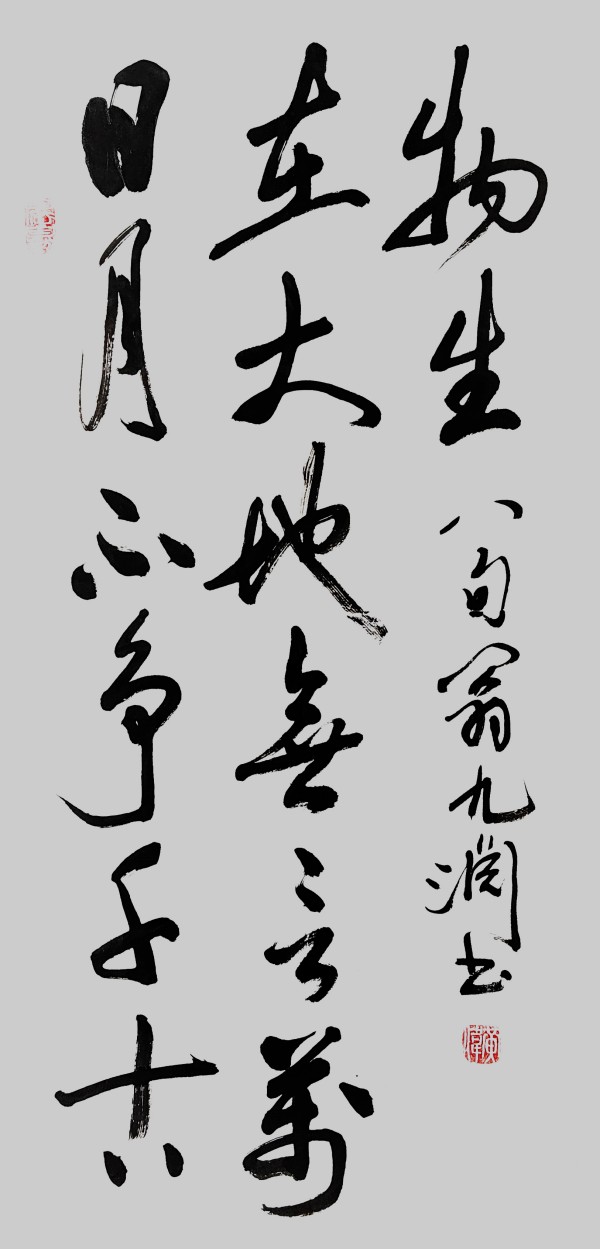 日月不争千古
在大地無言萬
物生
八旬翁九书